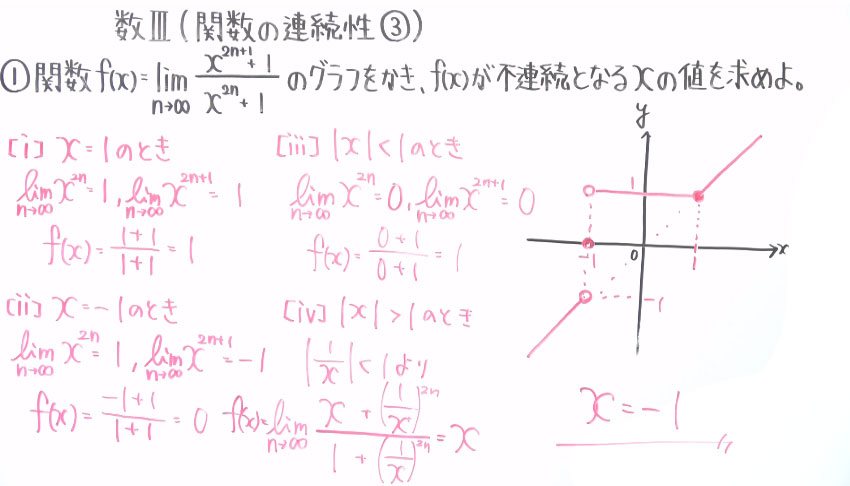 数Ⅲ(関数の連続性③)
①関数f(x)=lim n→∞ (x^{2n+1}+1)/(x^{2n}+1) のグラフをかき、f(x)が不連続となるxの値を求めよ。
[i] x=1のとき
lim n→∞ x^{2n}=1, lim n→∞ x^{2n+1}=1
f(x)=(1+1)/(1+1)=1
[ii] x=-1のとき
lim n→∞ x^{2n}=1, lim n→∞ x^{2n+1}=-1
f(x)=(-1+1)/(1+1)=0
[iii] |x|<1のとき
lim n→∞ x^{2n}=0, lim n→∞ x^{2n+1}=0
f(x)=(0+1)/(0+1)=1
[iv] |x|>1のとき
|1/x|<1より
f(x)=lim n→∞ (x+(1/x)^{2n})/(1+(1/x)^{2n})=x
y
1
x
-1
0
1
-1
x=-1